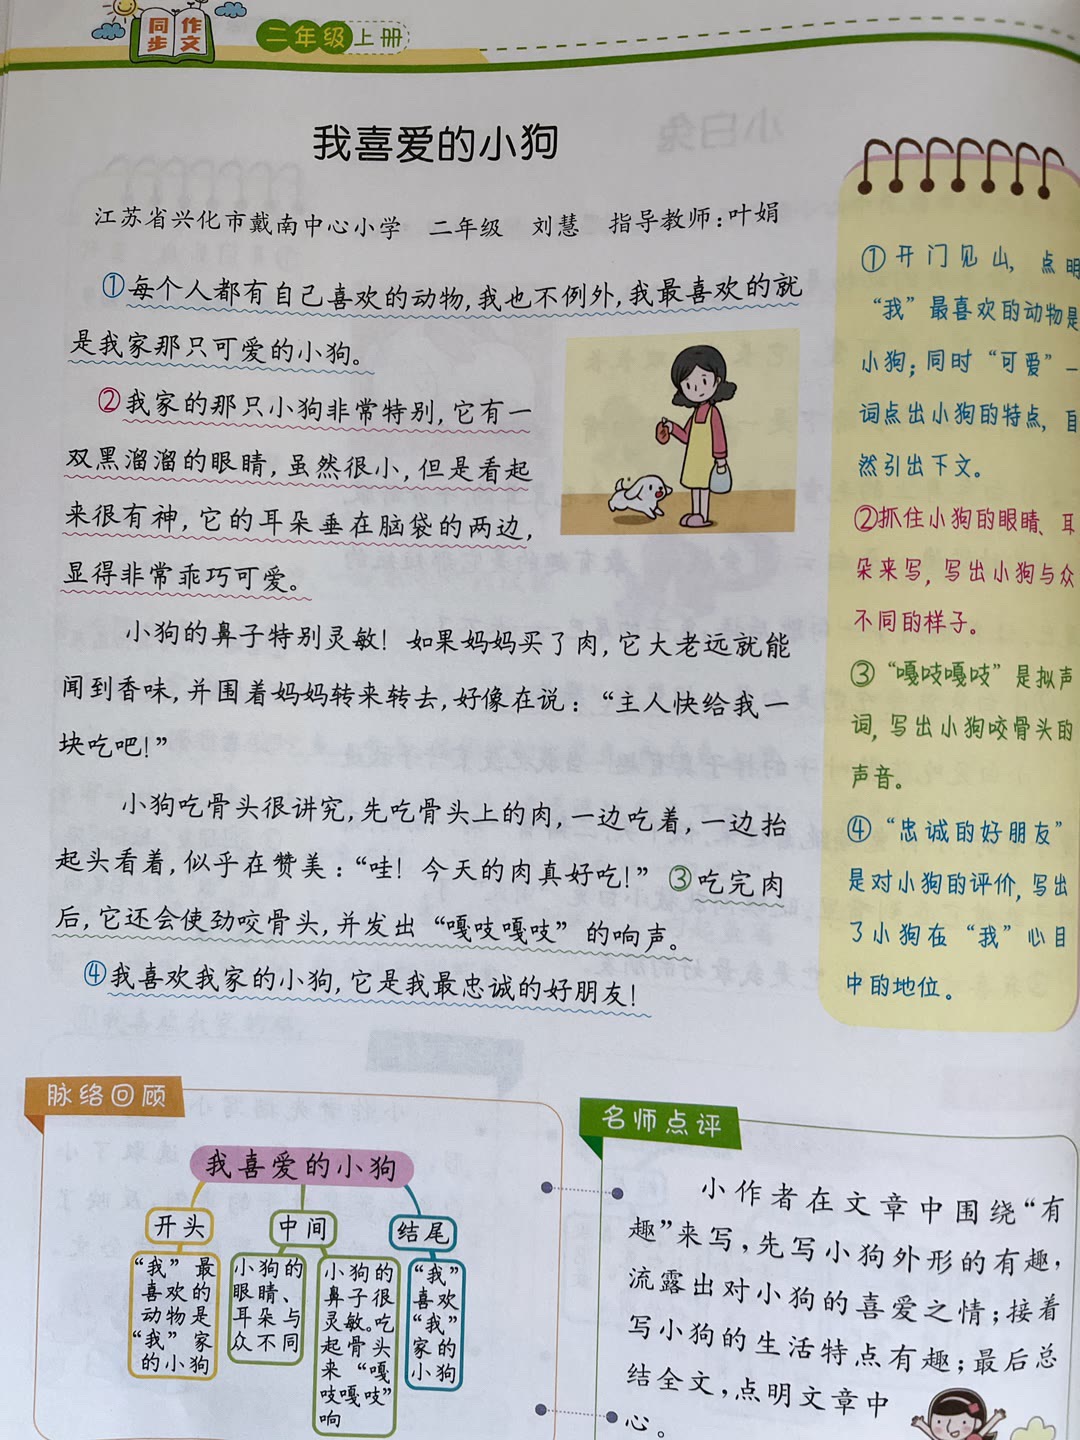 同步作文
二年级上册
我喜爱的小狗
江苏省兴化市戴南中心小学 二年级 刘慧 指导教师:叶娟
①每个人都有自己喜欢的动物,我也不例外,我最喜欢的就
是我家那只可爱的小狗。
②我家的那只小狗非常特别,它有一
双黑溜溜的眼睛,虽然很小,但是看起
来很有神,它的耳朵垂在脑袋的两边,
显得非常乖巧可爱。
小狗的鼻子特别灵敏!如果妈妈买了肉,它大老远就能
闻到香味,并围着妈妈转来转去,好像在说:“主人快给我一
块吃吧!”
小狗吃骨头很讲究,先吃骨头上的肉,一边吃着,一边抬
起头看着,似乎在赞美:“哇!今天的肉真好吃!”③吃完肉
后,它还会使劲咬骨头,并发出“嘎吱嘎吱”的响声。
④我喜欢我家的小狗,它是我最忠诚的好朋友!
①开门见山,点明
“我”最喜欢的动物是
小狗;同时“可爱”一
词点出小狗的特点,自
然引出下文。
②抓住小狗的眼睛、耳
朵来写,写出小狗与众
不同的样子。
③“嘎吱嘎吱”是拟声
词,写出小狗咬骨头的
声音。
④“忠诚的好朋友”
是对小狗的评价,写出
了小狗在“我”心目
中的地位。
脉络回顾
我喜爱的小狗
开头
“我”最
喜欢的
动物是
“我”家
的小狗
中间
小狗的
眼睛、
耳朵与
众不同
小狗的
鼻子很
灵敏。吃
起骨头
来“嘎
吱嘎吱”
响
结尾
“我”
喜欢
“我”
家的
小狗
名师点评
小作者在文章中围绕“有
趣”来写,先写小狗外形的有趣,
流露出对小狗的喜爱之情;接着
写小狗的生活特点有趣;最后总
结全文,点明文章中
心。